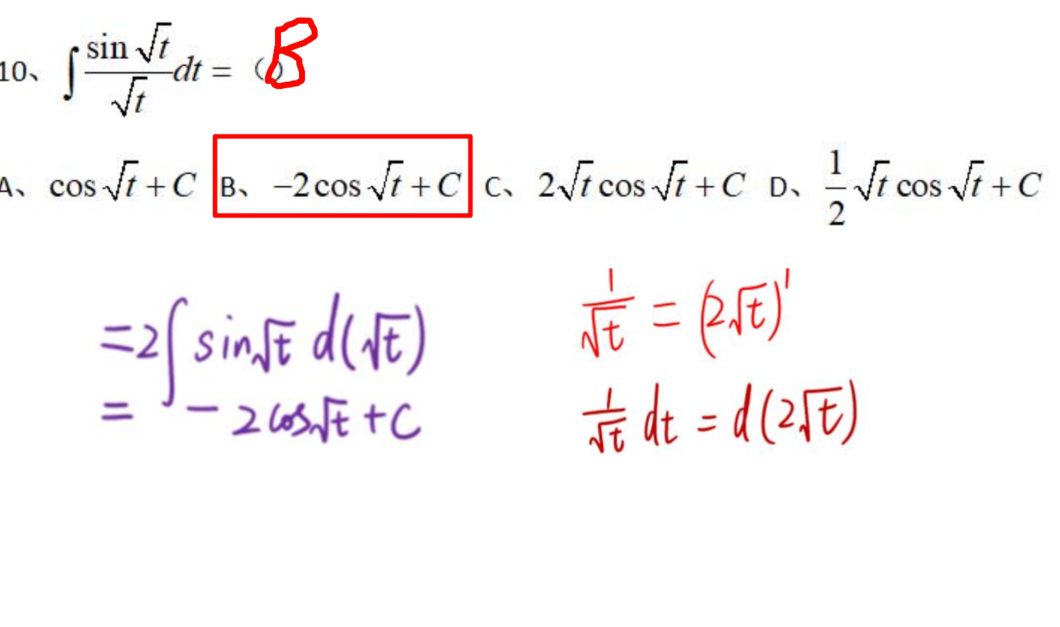 10、∫ sin√t / √t dt = ( ) B
A、 cos√t + C B、 −2cos√t + C C、 2√t cos√t + C D、 1/2 √t cos√t + C
= 2∫ sin√t d(√t)
= −2cos√t + C
1/√t = (2√t)'
1/√t dt = d(2√t)